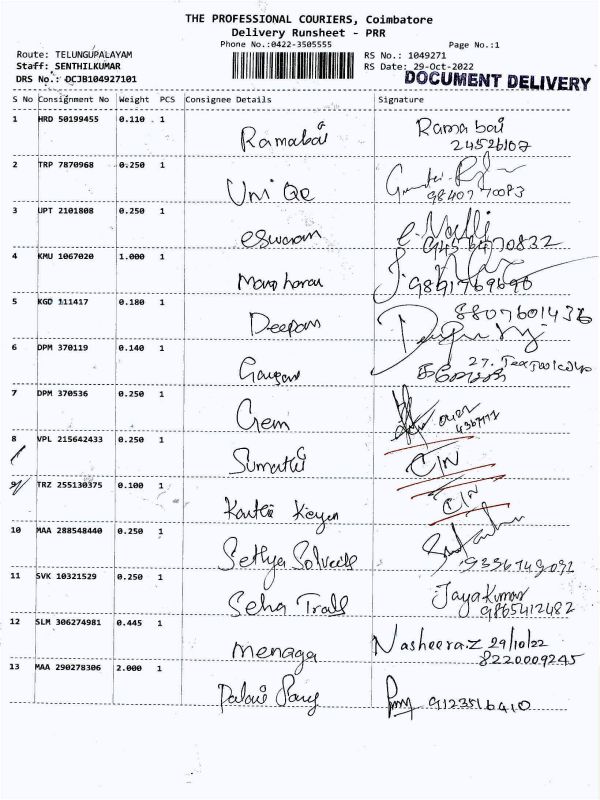 THE PROFESSIONAL COURIERS, Coimbatore
Delivery Runsheet - PRR
Phone No.:0422-3505555
Page No.:1
Route: TELUNGUPALAYAM
RS No.: 1049271
Staff: SENTHILKUMAR
RS Date: 29-Oct-2022
DRS No.: OCJB104927101
DOCUMENT DELIVERY
S No Consignment No Weight PCS Consignee Details Signature
1 HRD 50199455 0.110 1 Ramabai Ramabai
24526107
2 TRP 7870968 0.250 1 Uni Qe
9840770083
3 UPT 2101808 0.250 1 eswaran
9456470832
4 KMU 1067020 1.000 1 Manoharan
9891769690
5 KGD 111417 0.180 1 Deepam 8807601436
6 DPM 370119 0.140 1
27.
7 DPM 370536 0.250 1 Gem
8 VPL 215642433 0.250 1 Sumathi C/N
9 TRZ 255130375 0.100 1 C/N
10 MAA 288548440 0.250 1 Sethya
9336749091
11 SVK 10321529 0.250 1 Seha Jayakumar
9865412482
12 SLM 306274981 0.445 1 menaga Nasheera.z 29/10/22
8220009245
13 MAA 290278306 2.000 1 9123516410